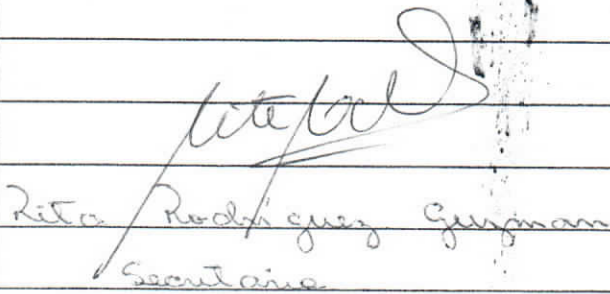 Rita Rodriguez Guzman
Secretaria